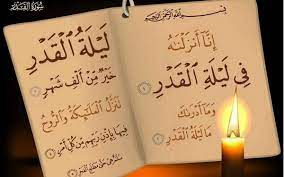 سُورَةُ القَدْرِ
بِسْمِ اللَّهِ الرَّحْمَٰنِ الرَّحِيمِ
إِنَّا أَنزَلْنَٰهُ
فِي لَيْلَةِ الْقَدْرِ ١
وَمَا أَدْرَىٰكَ
مَا لَيْلَةُ الْقَدْرِ ٢
لَيْلَةُ الْقَدْرِ
خَيْرٌ مِّنْ أَلْفِ شَهْرٍ ٣
تَنَزَّلُ الْمَلَٰئِكَةُ وَالرُّوحُ
فِيهَا بِإِذْنِ رَبِّهِم مِّن كُلِّ أَمْرٍ ٤
سَلَٰمٌ هِيَ حَتَّىٰ مَطْلَعِ الْفَجْرِ ٥